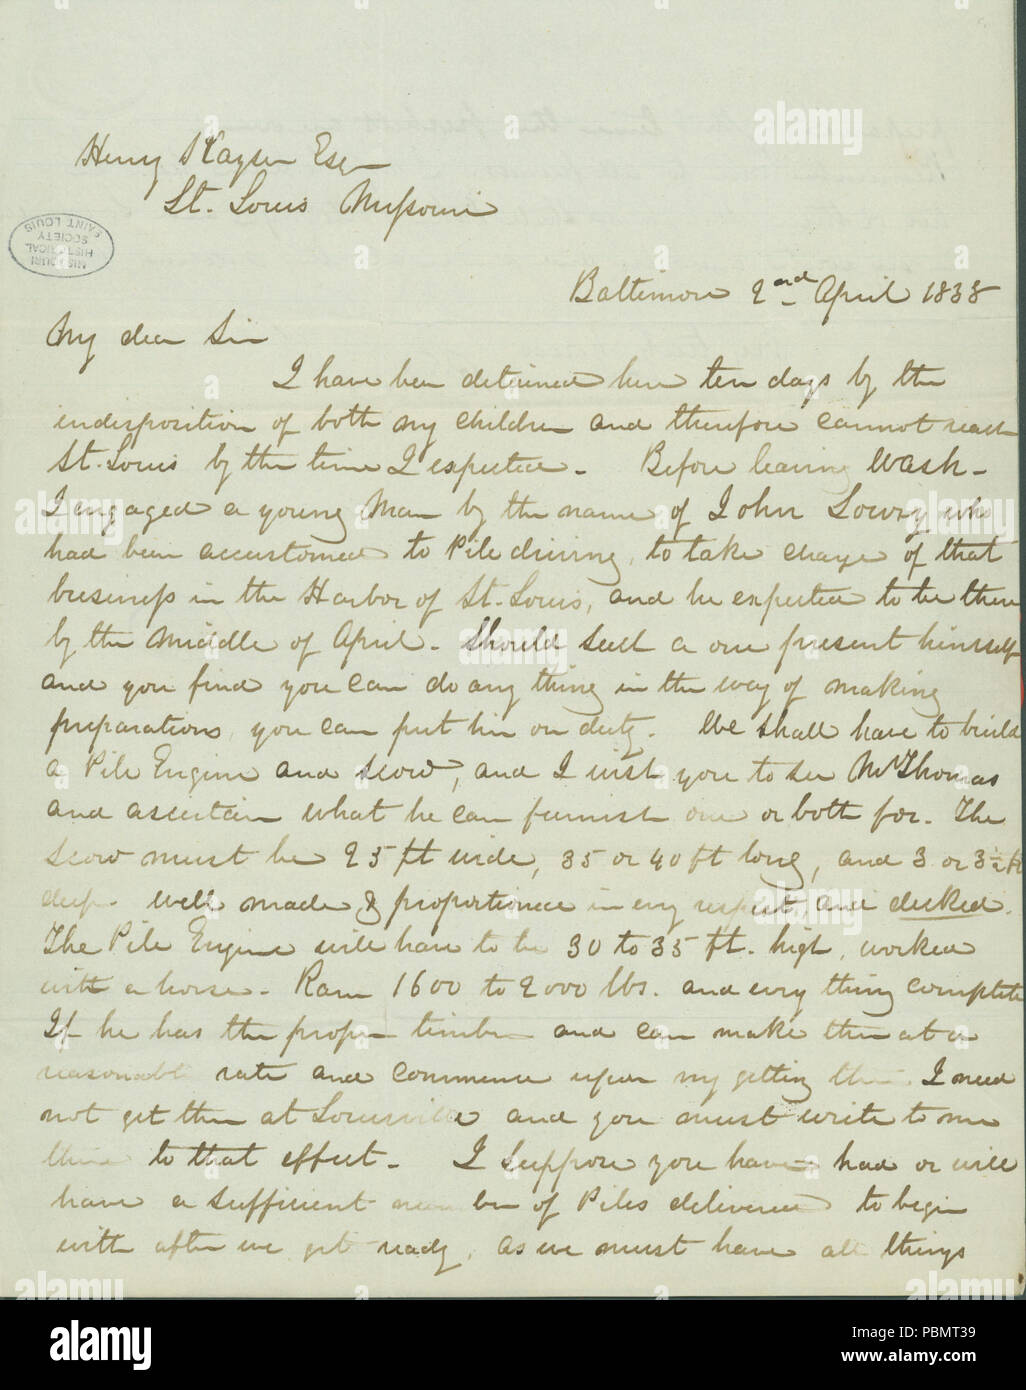 Henry Kayser Esqr
St. Louis Missouri
MISSOURI
HISTORICAL
SOCIETY
SAINT LOUIS
Baltimore 2nd April 1838
My dear Sir
I have been detained here ten days by the
indisposition of both my children and therefore cannot reach
St. Louis by the time I expected. Before leaving Wash.
I engaged a young man by the name of John Lowry who
had been accustomed to Pile driving, to take charge of that
business in the Harbor of St. Louis, and he expected to be there
by the middle of April. Should such a one present himself
and you find you can do any thing in the way of making
preparations, you can put him on duty. We shall have to build
a Pile Engine and scow, and I wish you to see Mr Thomas
and ascertain what he can furnish one or both for. The
scow must be 25 ft wide, 35 or 40 ft long, and 3 or 3½ ft
deep. well made & proportioned in every respect, and decked.
The Pile Engine will have to be 30 to 35 ft. high, worked
with a horse. Ram 1600 to 2000 lbs. and every thing complete
If he has the proper timber and can make them at a
reasonable rate and commence upon my getting there I need
not get them at Louisville and you must write to me
there to that effect. I suppose you have had or will
have a sufficient number of Piles delivered to begin
with after we get ready, as we must have all things
alamy
a
alamy
Image ID: PBMT39
www.alamy.com